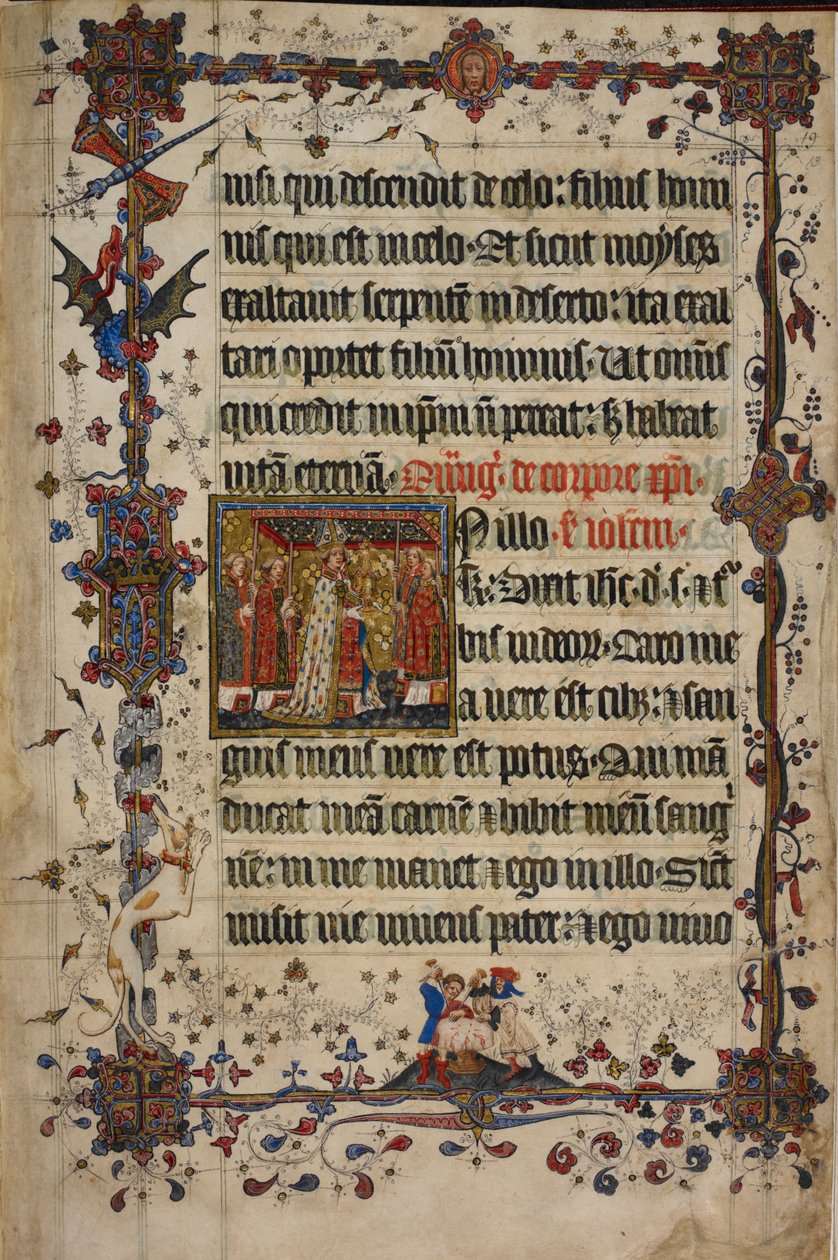 nisi qui descendit de celo: filius homi
nis qui est in celo. Et sicut moyses
exaltauit serpentē in deserto: ita exal
tari oportet filiū hominis. Ut omīs
qui credit in ip̄m n̄ pereat: sꝫ habeat
uitā eternā. de corpore xp̄i.
N illo. ioħem.
t̄: Dixit ih̄c. d̄. s. ⁊ t
bis iudeoꝝ. Caro me
a uere est cibꝰ: ⁊ san
guis meus uere est potus. Qui mā
ducat meā carnē ⁊ bibit meū sangⁱ
nē: in me manet ⁊ ego in illo. Sic̄t
misit me uiuens pater: ⁊ ego uiuo